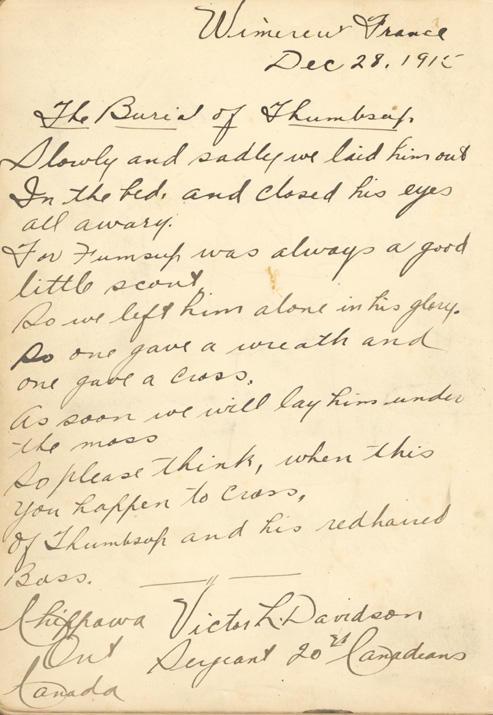 Wimereux France
Dec 28, 1915
The Burial of Thumbsup.
Slowly and sadly we laid him out
In the bed, and closed his eyes
all awary.
For Fumsup was always a good
little scout,
So we left him alone in his glory.
So one gave a wreath and
one gave a cross.
As soon we will lay him under
the moss
So please think, when this
you happen to cross,
Of Thumbsup and his redhaired
Boss.
Chippawa Victor L. Davidson
Ont Sergeant 20th Canadians
Canada